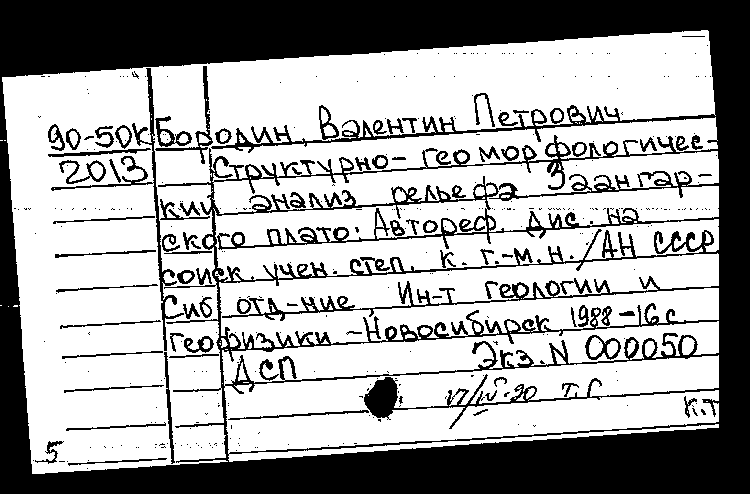 90-50К Бородин, Валентин Петрович
2013 Структурно-геоморфологичес-
кий анализ рельефа Заангар-
ского плато: Автореф. дис. на
соиск. учен. степ. к. г.-м.н. /АН СССР
Сиб отд-ние, Ин-т геологии и
геофизики -Новосибирск, 1988 -16 с.
ДСП Экз. N 000050
17/IV-90 Т.Г.
К.Т
5